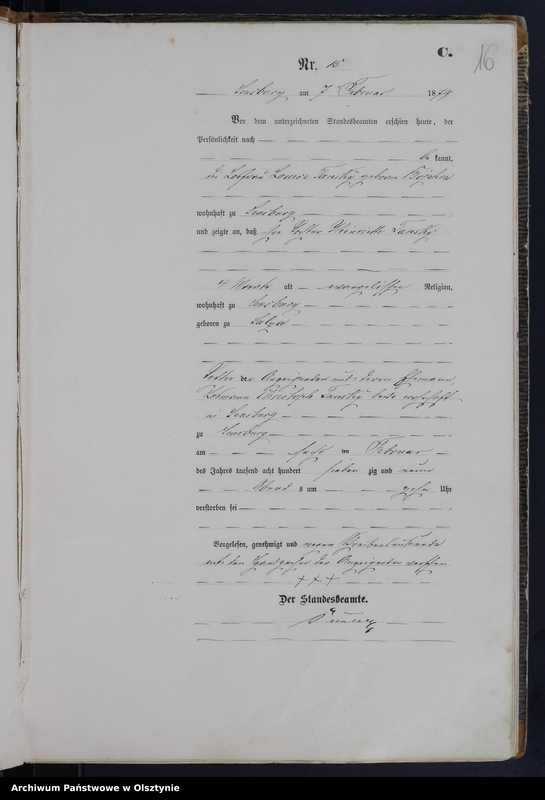 C.
16
Nr. 15
Sensburg am 7 Februar 1879
Vor dem unterzeichneten Standesbeamten erschien heute, der
Persönlichkeit nach
be kannt,
die Losfrau Louise Tansky geborne
wohnhaft zu Sensburg
und zeigte an, daß ihre Tochter Henriette Tansky
4 Monate alt evangelischer Religion,
wohnhaft zu Sensburg
geboren zu
Tochter der Anzeigenden und deren Ehemann,
Christoph Tansky beide wohnhaft
in Sensburg
zu Sensburg
am sechs ten Februar
des Jahres tausend acht hundert sieben zig und neun
Abend s um zehn Uhr
verstorben sei
Vorgelesen, genehmigt und wegen Schreibensunkunde
mit den Handzeichen der Anzeigenden versehen
+ + +
Der Standesbeamte.